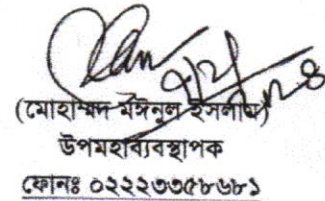 (মোহাম্মদ মঈনুল ইসলাম)
উপমহাব্যবস্থাপক
ফোনঃ ০২২২৩৩৫৮৬৮১